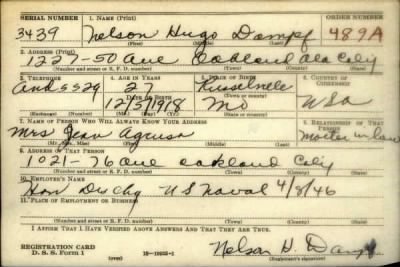 SERIAL NUMBER 1. NAME (Print) ORDER NUMBER
3439 Nelson Hugo Dampf 489A
(First) (Middle) (Last)
2. ADDRESS (Print)
1227-50 Ave Oakland Ala Calif
(Number and street or R. F. D. number) (Town) (County) (State)
3. TELEPHONE 4. AGE IN YEARS 5. PLACE OF BIRTH 6. COUNTRY OF CITIZENSHIP
And 5529 27 Russellville
DATE OF BIRTH
1918 Mo USA
7. NAME OF PERSON WHO WILL ALWAYS KNOW YOUR ADDRESS 8. RELATIONSHIP OF THAT PERSON
Mrs Jean Mother in law
(Mr., Mrs., Miss) (First) (Middle) (Last)
9. ADDRESS OF THAT PERSON
1021-76 Ave Oakland Calif
(Number and street or R. F. D. number) (Town) (County) (State)
10. EMPLOYER'S NAME
Hon Dischg US Naval 4/8/46
11. PLACE OF EMPLOYMENT OR BUSINESS
(Number and street or R. F. D. number) (Town) (County) (State)
I AFFIRM THAT I HAVE VERIFIED ABOVE ANSWERS AND THAT THEY ARE TRUE.
REGISTRATION CARD
D. S. S. Form 1 Nelson H. Dampf
(Registrant's signature)